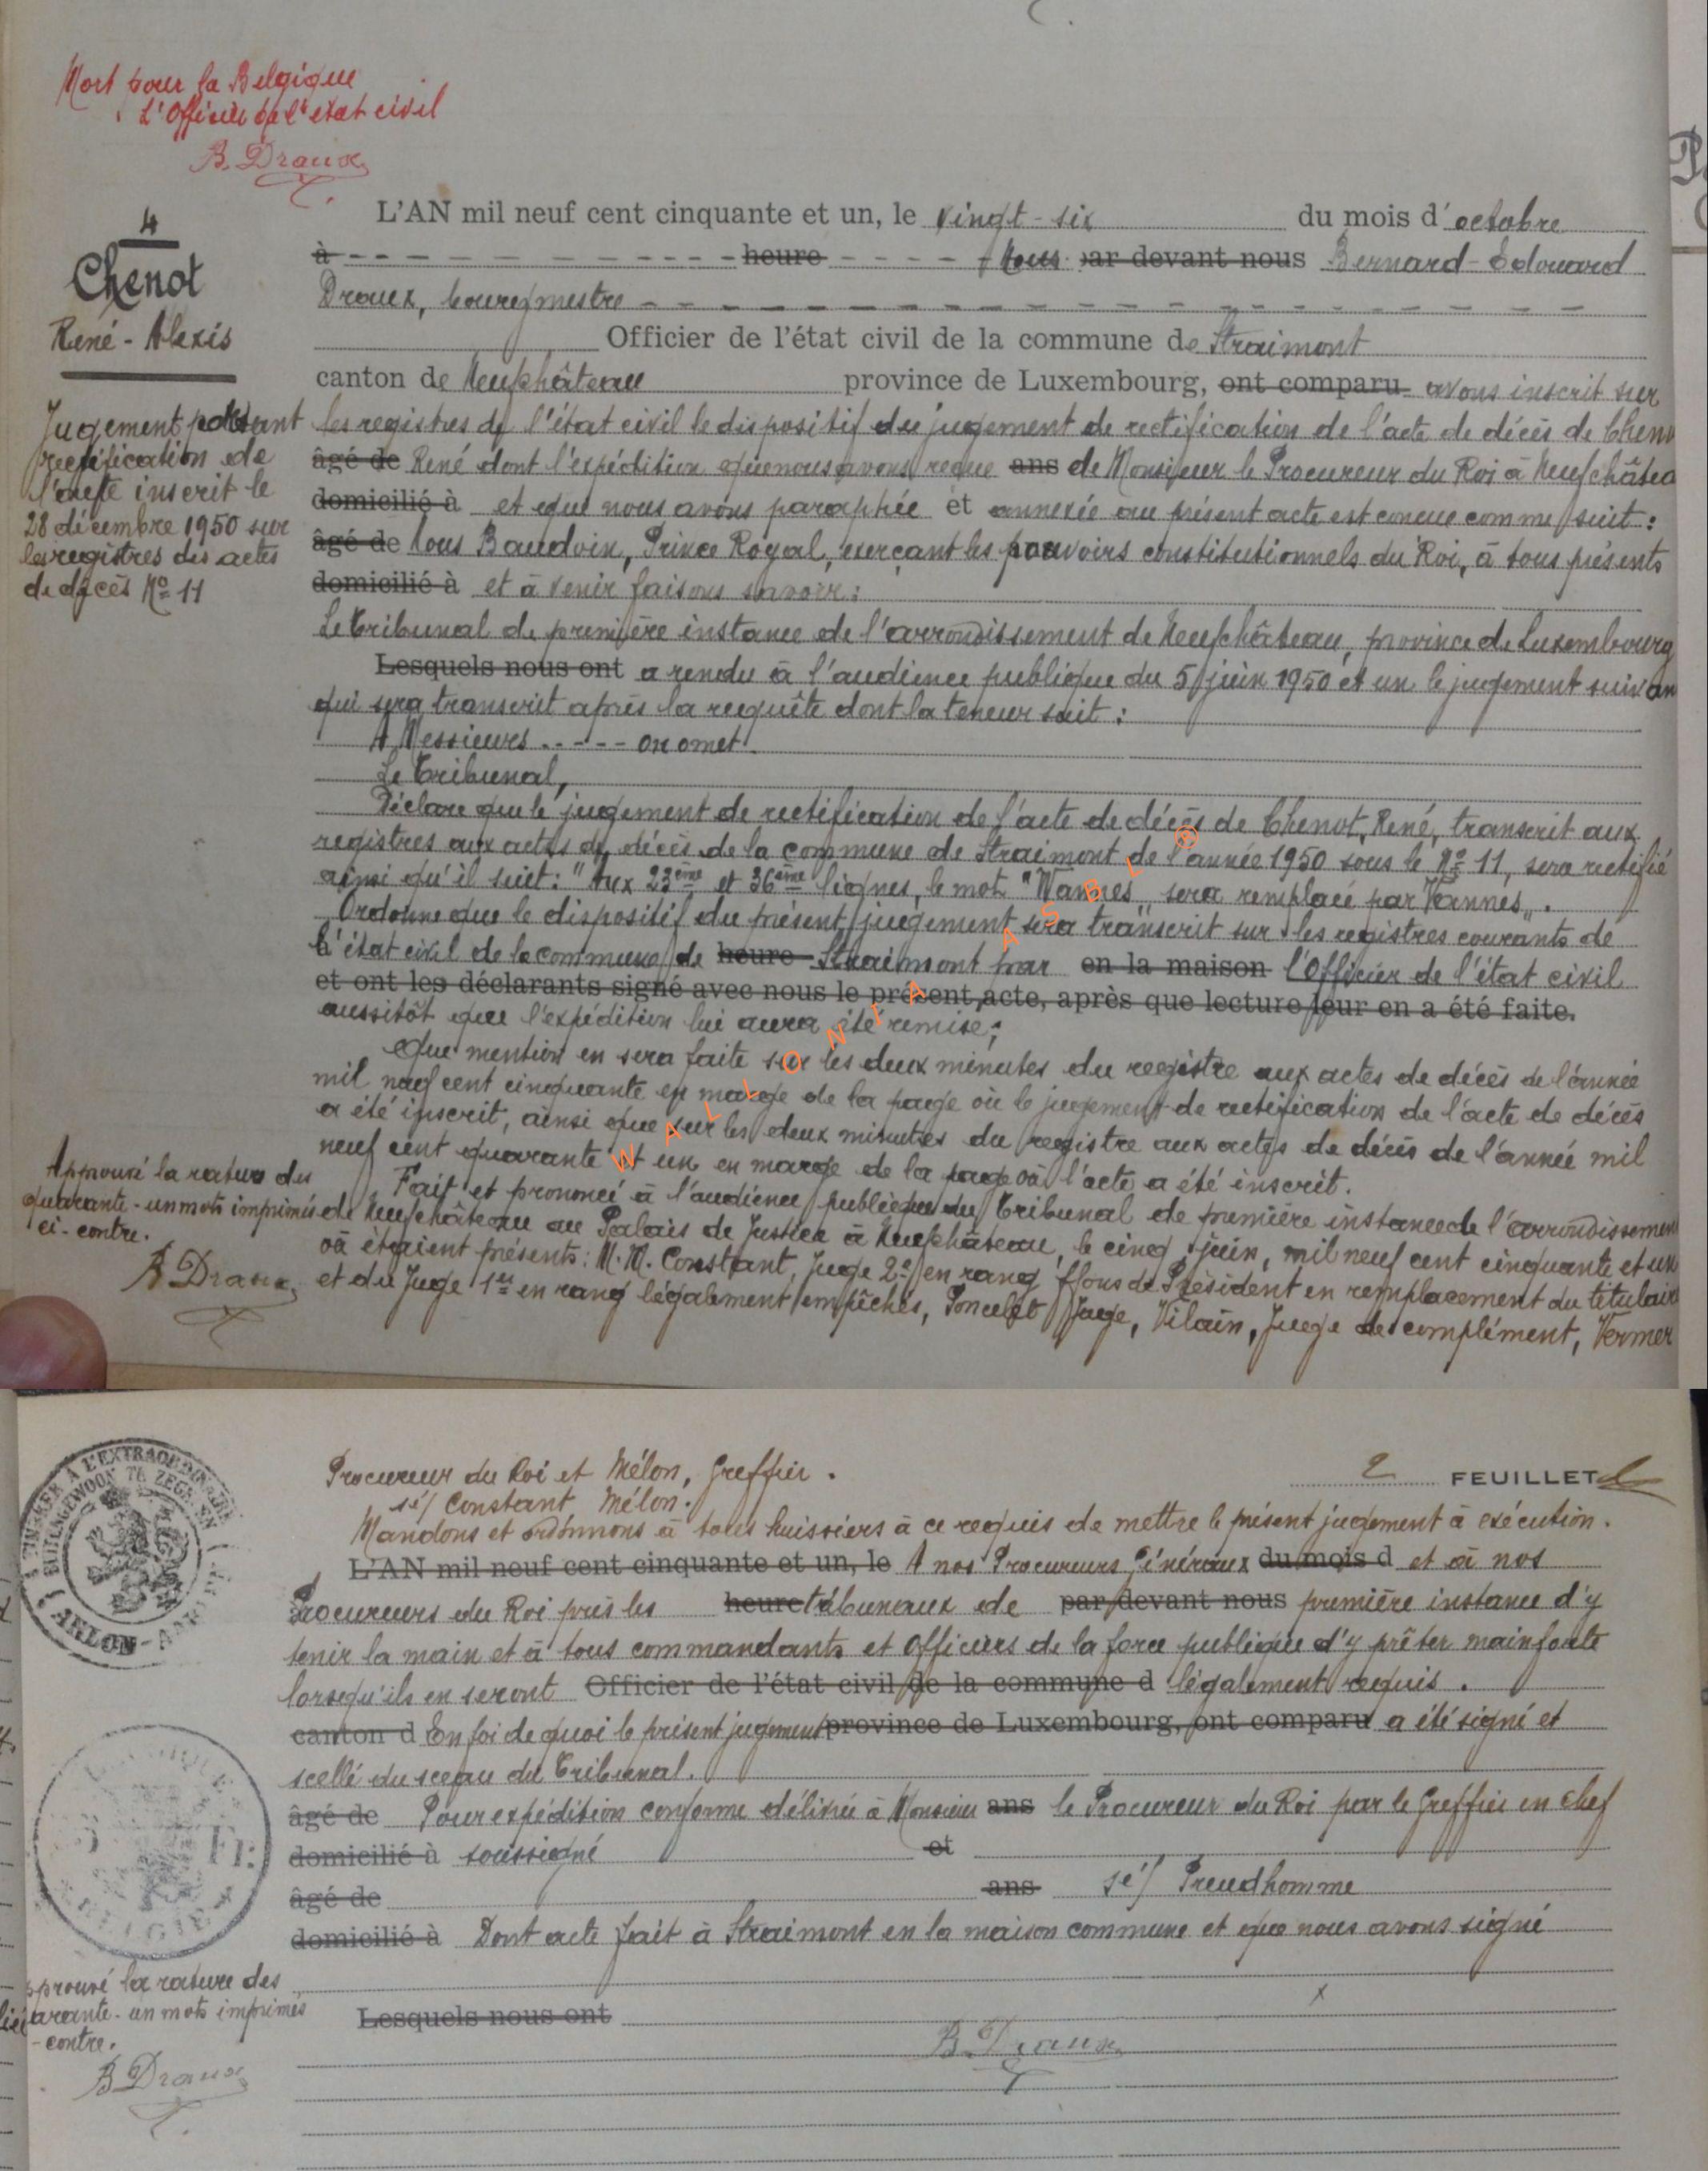 Mort pour la Belgique
L'Officier de l'état civil
B. Draux
4
Chenot
René - Alexis
Jugement portant
rectification de
l'acte inscrit le
28 décembre 1950 sur
les registres des actes
de décès No 11
L'AN mil neuf cent cinquante et un, le vingt-six du mois d'octobre
à heure Nous par devant nous Bernard-Edouard
Draux, bourgmestre
Officier de l'état civil de la commune de Straimont
canton de Neufchâteau province de Luxembourg, ont comparu avons inscrit sur
les registres de l'état civil le dispositif du jugement de rectification de l'acte de décès de Chenot
âgé de René dont l'expédition que nous avons reçue ans de Monsieur le Procureur du Roi à Neufchâteau
domicilié à et que nous avons paraphée et annexée au présent acte est conçue comme suit :
âgé de Nous Baudoin, Prince Royal, exerçant les pouvoirs constitutionnels du Roi, à tous présents
domicilié à et à venir faisons savoir :
Le Tribunal de première instance de l'arrondissement de Neufchâteau, province de Luxembourg
Lesquels nous ont a rendu à l'audience publique du 5 juin 1950 et un le jugement suivan
qui sera transcrit après la requête dont la teneur suit :
A Messieurs - - - - - on omet.
Le Tribunal,
Déclare que le jugement de rectification de l'acte de décès de Chenot, René, transcrit aux
registres aux actes de décès de la commune de Straimont de l'année 1950 sous le No 11, sera rectifié
ainsi qu'il suit : "Aux 23ème et 36ème lignes, le mot "Wannes" sera remplacé par Vannes".
Ordonne que le dispositif du présent jugement sera transcrit sur les registres courants de
l'état civil de la commune de heure Straimont par en la maison l'Officier de l'état civil
et ont les déclarants signé avec nous le présent acte, après que lecture leur en a été faite.
aussitôt que l'expédition lui aura été remise ;
Que mention en sera faite sur les deux minutes du registre aux actes de décès de l'année
mil neuf cent cinquante en marge de la page où le jugement de rectification de l'acte de décès
a été inscrit, ainsi que sur les deux minutes du registre aux actes de décès de l'année mil
neuf cent quarante et un en marge de la page où l'acte a été inscrit.
Fait et prononcé à l'audience publique du Tribunal de première instance de l'arrondissement
de Neufchâteau au Palais de Justice à Neufchâteau, le cinq juin, mil neuf cent cinquante et un
où étaient présents : M.M. Constant, Juge 2e en rang ffons de Président en remplacement du titulaire
et du Juge 1er en rang légalement empêchés, Poncelet Juge, Vilain, Juge de complément, Vermer
Approuvé la rature des
quarante-un mots imprimés
ci-contre.
B Draux
WALLONIA ASBL ®
A TIMBRER A L'EXTRAORDINAIRE
BUITENGEWOON TE ZEGELEN
ARLON-AARLEN
2 FEUILLET
Procureur du Roi et Mélon, Greffier.
sé/ Constant Mélon.
Mandons et ordonnons à tous huissiers à ce requis de mettre le présent jugement à exécution.
L'AN mil neuf cent cinquante et un, le A nos Procureurs Généraux du mois d et à nos
Procureurs du Roi près les heure tribunaux de par devant nous première instance d'y
tenir la main et à tous commandants et Officiers de la force publique d'y prêter main forte
lorsqu'ils en seront Officier de l'état civil de la commune d légalement requis.
canton d En foi de quoi le présent jugement province de Luxembourg, ont comparu a été signé et
scellé du sceau du Tribunal.
âgé de Pour expédition conforme délivrée à Monsieur ans le Procureur du Roi par le Greffier en chef
domicilié à soussigné et
âgé de ans sé/ Preudhomme
domicilié à Dont acte fait à Straimont en la maison commune et que nous avons signé
Lesquels nous ont
B. Draux
pprouvé la rature des
arante-un mots imprimés
-contre.
B Draux